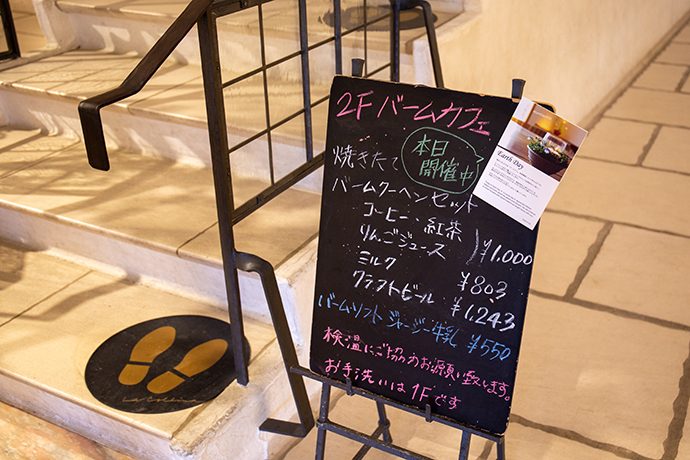 2F バームカフェ
本日
開催中
焼きたて
バームクーヘンセット
コーヒー・紅茶
りんごジュース
¥1,000
ミルク
¥803
クラフトビール
¥1,243
バームソフト ジャージー牛乳 ¥550
検温にご協力お願い致します。
お手洗いは1Fです
Earth Day
La Collina